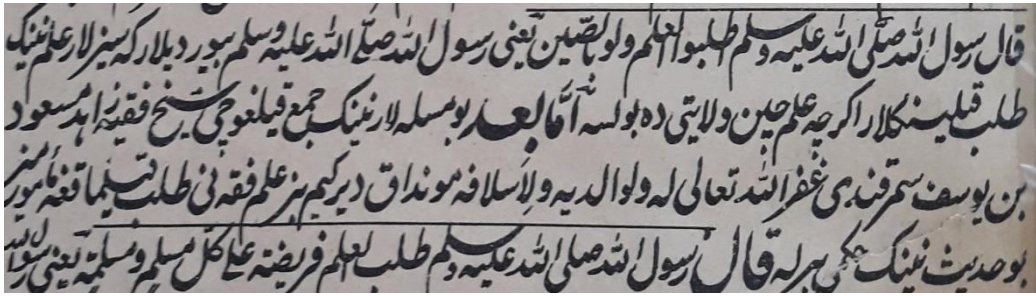 قال رسول الله صلی الله علیه وسلم اطلبوا العلم ولو بالصین یعنی رسول الله صلی الله علیه وسلم بیوردیلار که سیزلار علم نینک
طلب قیلینکلار اکرچه علم چین ولایتی ده بولسه امّا بعد بو مسله لار نینک جمع قیلغوچی شیخ فقیه زاهد مسعود
بن یوسف سمرقندی غفر الله تعالی له ولوالدیه ولاسلافه مونداق دیر کیم بیز علم فقه نی طلب قیلماقغه مامور میز
بو حدیث نینک حکمی بیرله قال رسول الله صلی الله علیه وسلم طلب العلم فریضة علی کل مسلم ومسلمة یعنی رسول الله